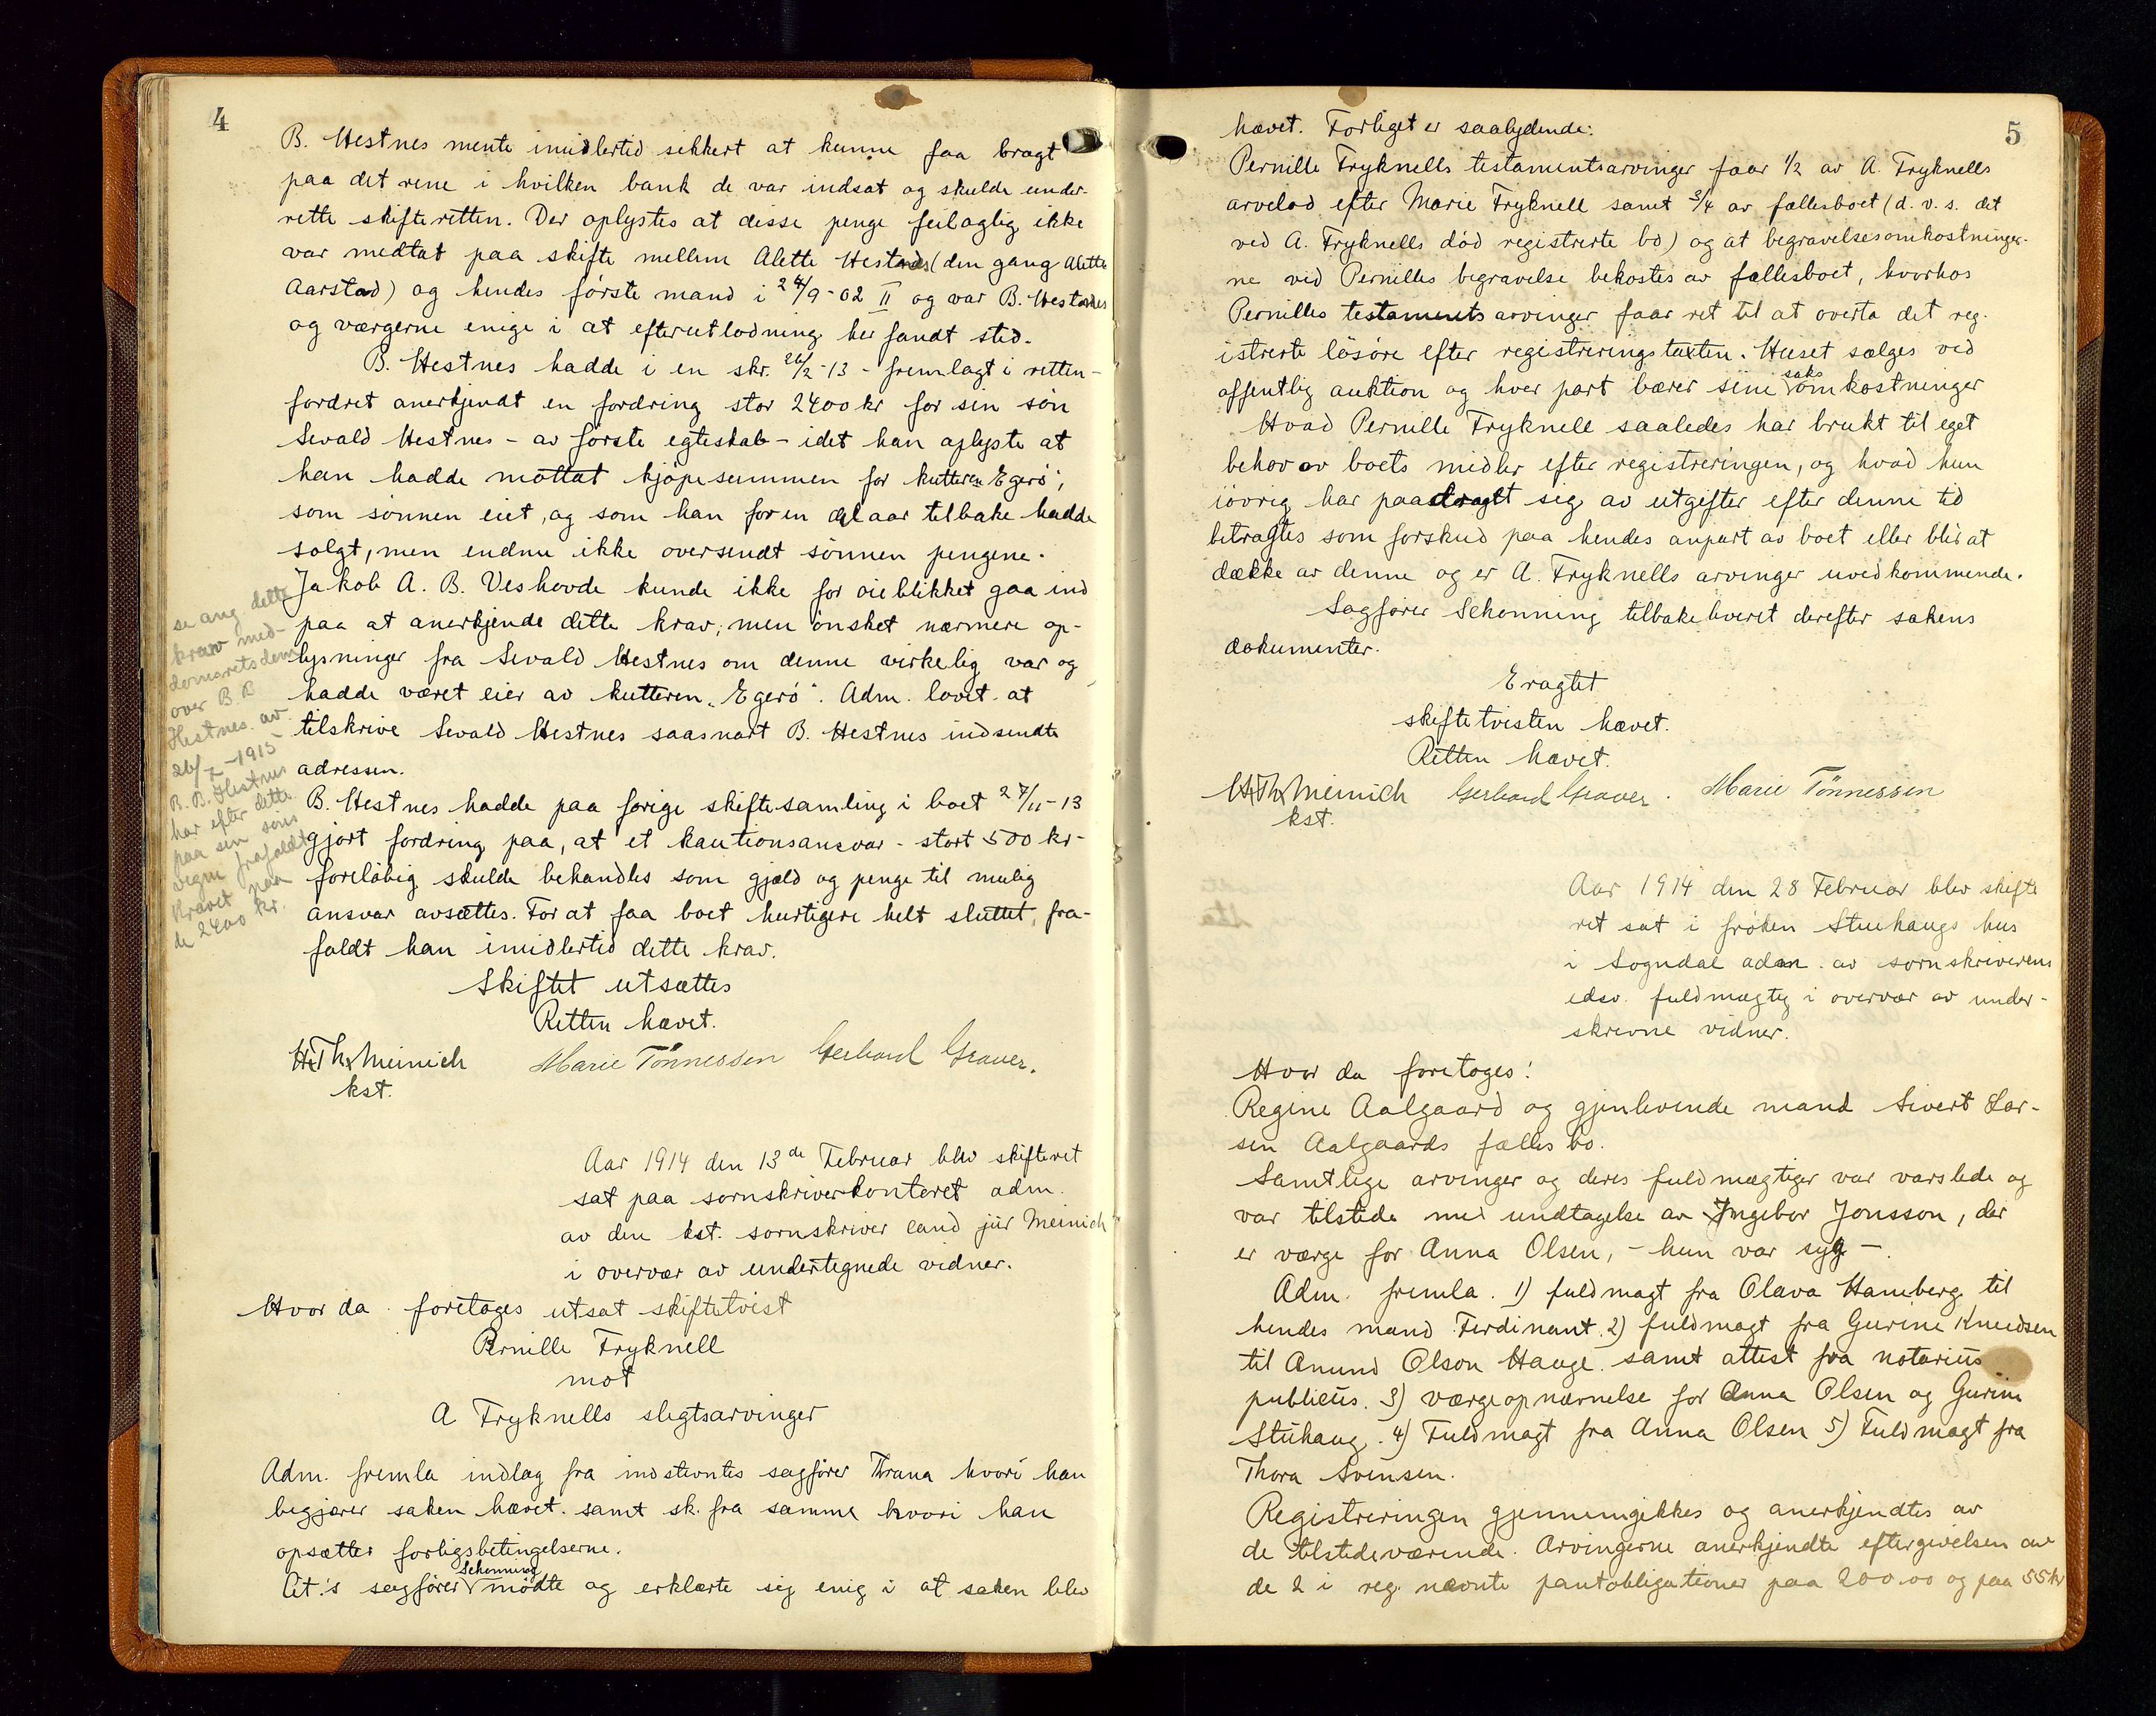 4
B. Hestnes mente imidlertid sikkert at kunne faa bragt
paa det rene i hvilken bank de var indsat og skulde under-
rette skifteretten. Der oplystes at disse penge feilaglig ikke
var medtat paa skifte mellem Alette Hestnes (den gang Alette
Aarstad) og hendes første mand i 24/9-02 II og var B. Hestnes
og værgerne enige i at efterutlodning her fandt sted.
B. Hestnes hadde i en skr. 26/2-13 - fremlagt i retten -
fordret anerkjendt en fordring stor 2400 kr for sin søn
Sevald Hestnes - av første egteskab - idet han oplyste at
han hadde mottat kjøpesummen for kutteren "Egerö",
som sønnen eiet, og som han for en del aar tilbake hadde
solgt, men endnu ikke oversendt sønnen pengene.
Jakob A. B. Veshovde kunde ikke for øieblikket gaa ind
paa at anerkjende dette krav, men ønsket nærmere op-
lysninger fra Sevald Hestnes om denne virkelig var og
hadde været eier av kutteren "Egerö". Adm. lovet at
tilskrive Sevald Hestnes saasnart B. Hestnes indsendte
adressen.
se ang dette
krav med-
domsrets dom
over B. B
Hestnes av
26/7-1915
B. B. Hestnes
har efter dette
paa sin søns
vegne frafaldt
kravet paa
de 2400 kr.
B. Hestnes hadde paa forige skiftesamling i boet 27/11-13
gjort fordring paa, at et kautionsansvar - stort 500 kr -
foreløbig skulde behandles som gjæld og penge til mulig
ansvar avsættes. For at faa boet hurtigere helt sluttet, fra-
faldt han imidlertid dette krav.
Skiftet utsættes
Retten hævet.
H. Th. Meinich Marie Tönnessen Gerhard Graver.
kst.
Aar 1914 den 13de Februar blev skifteret
sat paa sornskriverkontoret adm.
av den kst. sornskriver cand jür Meinich
i overvær av undertegnede vidner.
Hvor da foretages utsat skiftetvist
Pernille Fryknell
mot
A Fryknells slegtsarvinger
Adm. fremla indlæg fra indstevntes sagfører Thrana hvori han
begjærer saken hævet. samt sk. fra samme hvori han
opsætter forligsbetingelserne.
Cit.'s sagfører Schonning mødte og erklærte sig enig i at saken blev
5
hævet. Forliget er saalydende:
Pernille Fryknells testamentsarvinger faar 1/2 av A. Fryknells
arvelod efter Marie Fryknell samt 3/4 av fællesboet (d. v. s. det
ved A. Fryknells död registrerte bo) og at begravelsesomkostninger-
ne ved Pernilles begravelse bekostes av fællesboet, hvorhos
Pernilles testamentsarvinger faar ret til at overta det reg-
istrerte løsøre efter registreringstaxten. Huset sælges ved
offentlig auktion og hver part bærer sine saksomkostninger
Hvad Pernille Fryknell saaledes har brukt til eget
behov av boets midler efter registreringen, og hvad hun
iøvrig har paadragt sig av utgifter efter denne tid
betragtes som forskud paa hendes anpart av boet eller blir at
dække av denne og er A. Fryknells arvinger uvedkommende.
Sagfører Schonning tilbakeleveret derefter sakens
dokumenter.
Eragtet
skiftetvisten hævet.
Retten hævet.
H. Th. Meinich Gerhard Graver. Marie Tönnessen
kst.
Aar 1914 den 28 Februar blev skifte
ret sat i frøken Stuehaugs hus
i Sogndal adm. av sornskriverens
edsv. fuldmægtig i overvær av under-
skrevne vidner.
Hvor da foretoges:
Regine Aalgaard og gjenlevende mand Sivert Lar-
sen Aalgaards fælles bo.
Samtlige arvinger og deres fuldmægtiger var varslede og
var tilstede med undtagelse av Ingebor Jonsson, der
er værge for Anna Olsen, - hun var syg -.
Adm. fremla. 1) fuldmagt fra Olava Hamberg til
hendes mand Ferdinant. 2) fuldmagt fra Gurine Knudsen
til Anund Olson Hauge. samt attest fra notarius
publicus. 3) værgeopnævnelse for Anna Olsen og Gurine
Stuhaug. 4) Fuldmagt fra Anna Olsen 5) Fuldmagt fra
Thora Svensen.
Registreringen gjennemgikkes og anerkjendtes av
de tilstedeværende. Arvingerne anerkjendte eftergivelsen av
de 2 i reg. nævnte pantobligationer paa 200.00 og paa 55 kr